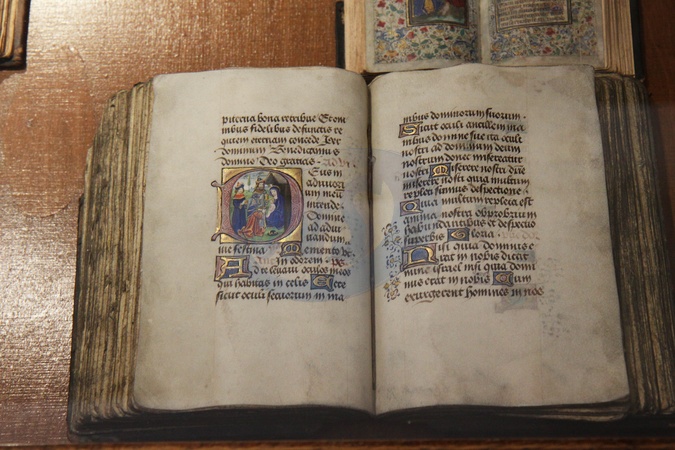 bona retribue Et om
nibus fidelibus defunctis re
quiem eternam concede Per
dominum Benedicamus
domino Deo gratias
Deus in
adiutori
um meu
intende
Domine
ad adiu
uandum
me festina Memento
in odorem ps
Ad te leuaui oculos meos
qui habitas in celis Ecce
sicut oculi seruorum in ma
nibus dominorum suorum
Sicut oculi ancille in ma
nibus domine sue ita oculi
nostri ad dominum deum
nostrum donec misereatur
nostri Miserere nostri dne
miserere nostri quia multum
repleti sumus despectione
Quia multum repleta est
anima nostra obprobrium
habundantibus et despectio
superbis Gloria
Nisi quia dominus e
rat in nobis dicat
nunc israel nisi quia domi
nus erat in nobis Cum
exurgerent homines in nos